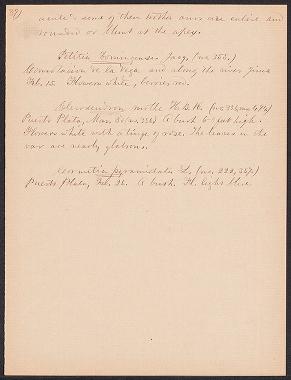 acute; some of them broader ones are entire and
rounded or blunt at the apex.
Petitia Domingensis Jacq. (no. 353.)
Consolacion de la Vega and along the river Jima
Feb. 15. Flowers white, berries red.
Clerodendron molle H.B.K. (no 336
Puerto Plata, Mar. A bush 6 feet high.
Flowers white with a tinge of rose. The leaves in the
var are nearly glabrous.
Cornutia pyramidata L. (no. 222, 357.)
Puerto Plata, Feb. 26. A bush. Fl. light blue